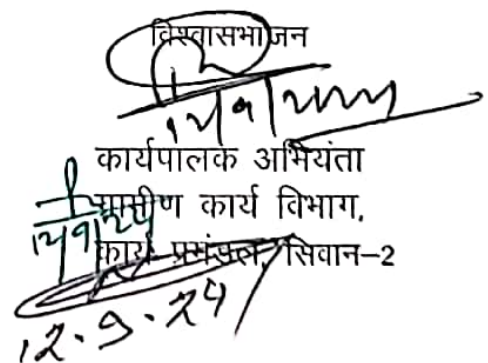 विश्वासभाजन
कार्यपालक अभियंता
ग्रामीण कार्य विभाग,
कार्य प्रमंडल, सिवान-2
12.9.24